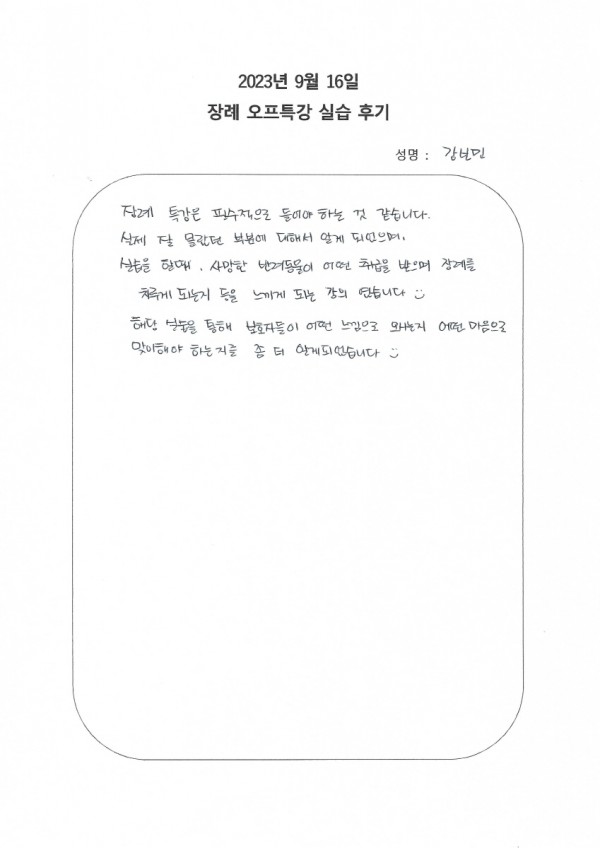 2023년 9월 16일
장례 오프특강 실습 후기
성명 : 강보민
장례 특강은 필수적으로 들어야 하는 것 같습니다.
실제 잘 몰랐던 부분에 대해서 알게 되었으며,
실습을 할때, 사망한 반려동물이 어떤 취급을 받으며 장례를
치루게 되는지 등을 느끼게 되는 강의 였습니다
해당 실습을 통해 보호자들이 어떤 느낌으로 오시는지 어떤 마음으로
맞이해야 하는지를 좀 더 알게되었습니다